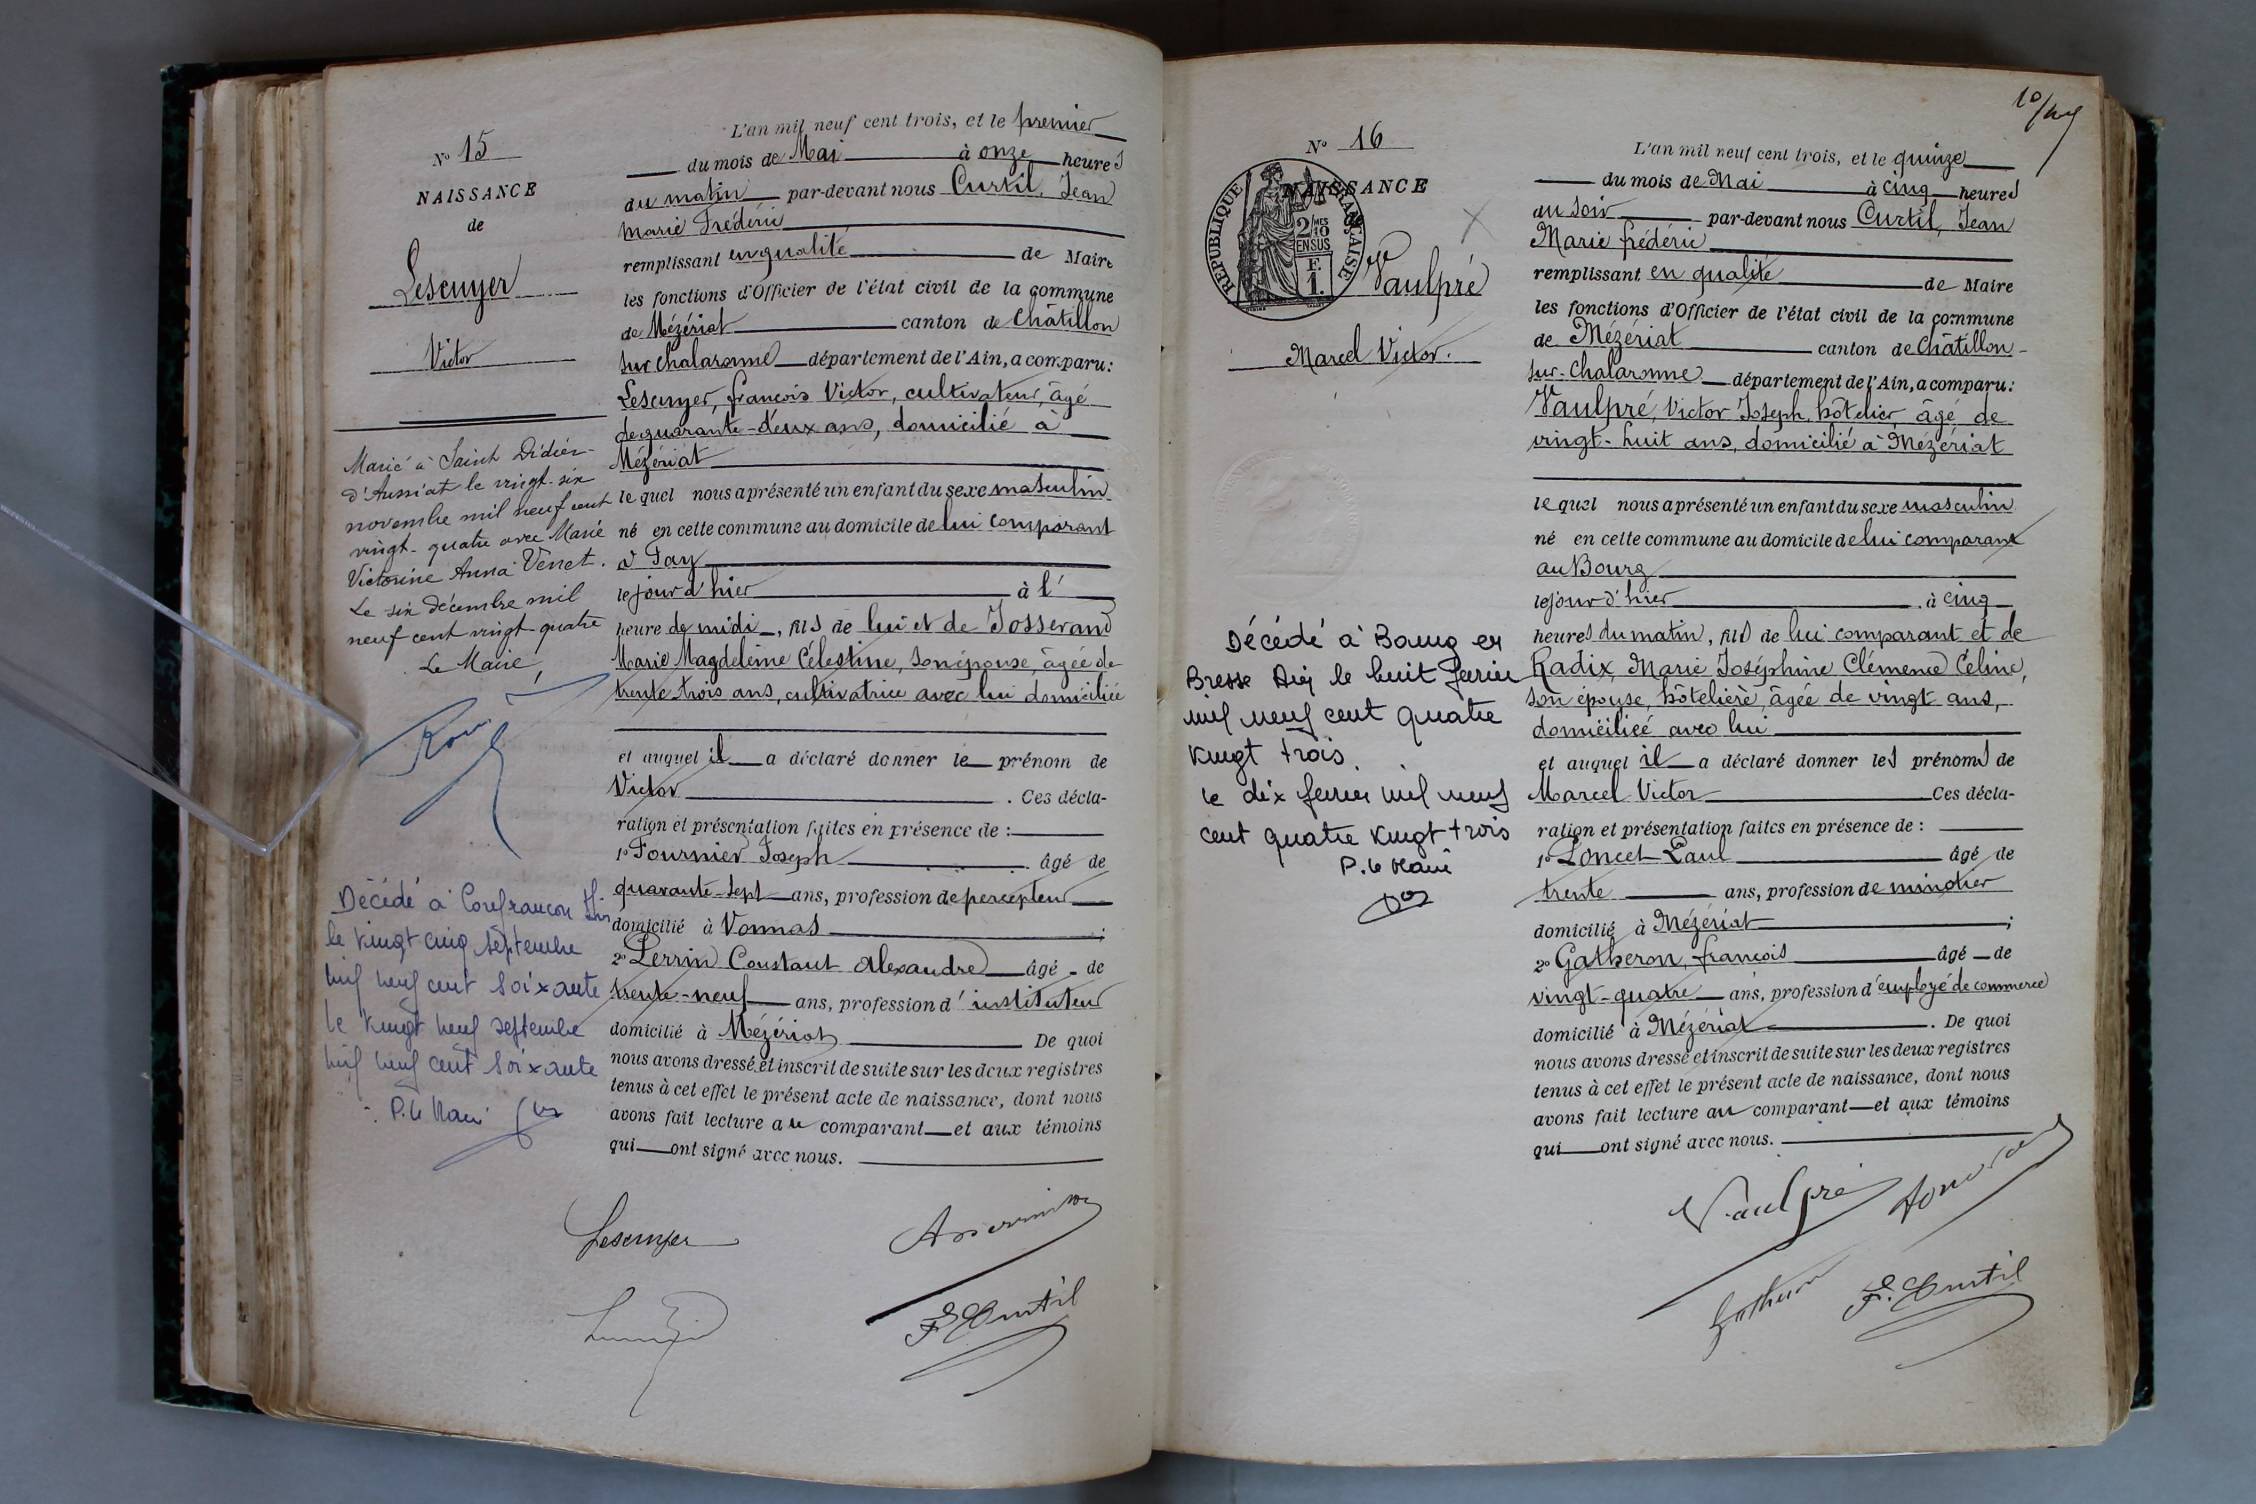 N° 15
NAISSANCE
de
Lescuyer
Victor
Marié à Saint Didier-
d'Aussiat le vingt-six
novembre mil neuf cent
vingt-quatre avec Marie
Victorine Anna Venet.
Le six décembre mil
neuf cent vingt-quatre
Le Maire,
Décédé à Confrançon Ain
le vingt cinq septembre
mil neuf cent soixante
le vingt neuf septembre
mil neuf cent soixante
P. le Maire
L'an mil neuf cent trois, et le premier
du mois de Mai à onze heures
du matin par-devant nous Curtil, Jean
Marie Frédéric
remplissant en qualité de Maire
les fonctions d'Officier de l'état civil de la commune
de Mézériat canton de Châtillon
sur Chalaronne département de l'Ain, a comparu:
Lescuyer, françois Victor, cultivateur, âgé
de quarante-deux ans, domicilié à
Mézériat
lequel nous a présenté un enfant du sexe masculin
né en cette commune au domicile de lui comparant
à Fay
le jour d'hier à l'
heure de midi, fils de lui et de Josserand
Marie Magdeleine Célestine, son épouse, âgée de
trente trois ans, cultivatrice avec lui domiciliée
et auquel il a déclaré donner le prénom de
Victor. Ces décla-
ration et présentation faites en présence de :
1° Fournier Joseph âgé de
quarante-sept ans, profession de percepteur
domicilié à Vonnas ;
2° Perrin Constant Alexandre âgé de
trente-neuf ans, profession d'instituteur
domicilié à Mézériat De quoi
nous avons dressé et inscrit de suite sur les deux registres
tenus à cet effet le présent acte de naissance, dont nous
avons fait lecture au comparant et aux témoins
qui ont signé avec nous.
Lescuyer
F. Curtil
10/
N° 16
NAISSANCE
REPUBLIQUE FRANÇAISE
2/10MES
EN SUS
F.
1.
de
Vaulpré
Marcel Victor.
Décédé à Bourg en
Bresse Ain le huit février
mil neuf cent quatre
vingt trois.
le dix février mil neuf
cent quatre vingt trois
P. le Maire
L'an mil neuf cent trois, et le quinze
du mois de Mai à cinq heures
du soir par-devant nous Curtil, Jean
Marie frédéric
remplissant en qualité de Maire
les fonctions d'Officier de l'état civil de la commune
de Mézériat canton de Châtillon-
sur-Chalaronne département de l'Ain, a comparu:
Vaulpré, Victor Joseph, hôtelier, âgé de
vingt-huit ans, domicilié à Mézériat
lequel nous a présenté un enfant du sexe masculin
né en cette commune au domicile de lui comparant
au Bourg
le jour d'hier à cinq
heures du matin, fils de lui comparant et de
Radix, Marie Joséphine Clémence Céline,
son épouse, hôtelière, âgée de vingt ans,
domiciliée avec lui
et auquel il a déclaré donner les prénoms de
Marcel Victor Ces décla-
ration et présentation faites en présence de :
1° Poncet Paul âgé de
trente ans, profession de minotier
domicilié à Mézériat ;
2° Gatheron, françois âgé de
vingt-quatre ans, profession d'employé de commerce
domicilié à Mézériat. De quoi
nous avons dressé et inscrit de suite sur les deux registres
tenus à cet effet le présent acte de naissance, dont nous
avons fait lecture au comparant et aux témoins
qui ont signé avec nous.
Vaulpré
F. Curtil